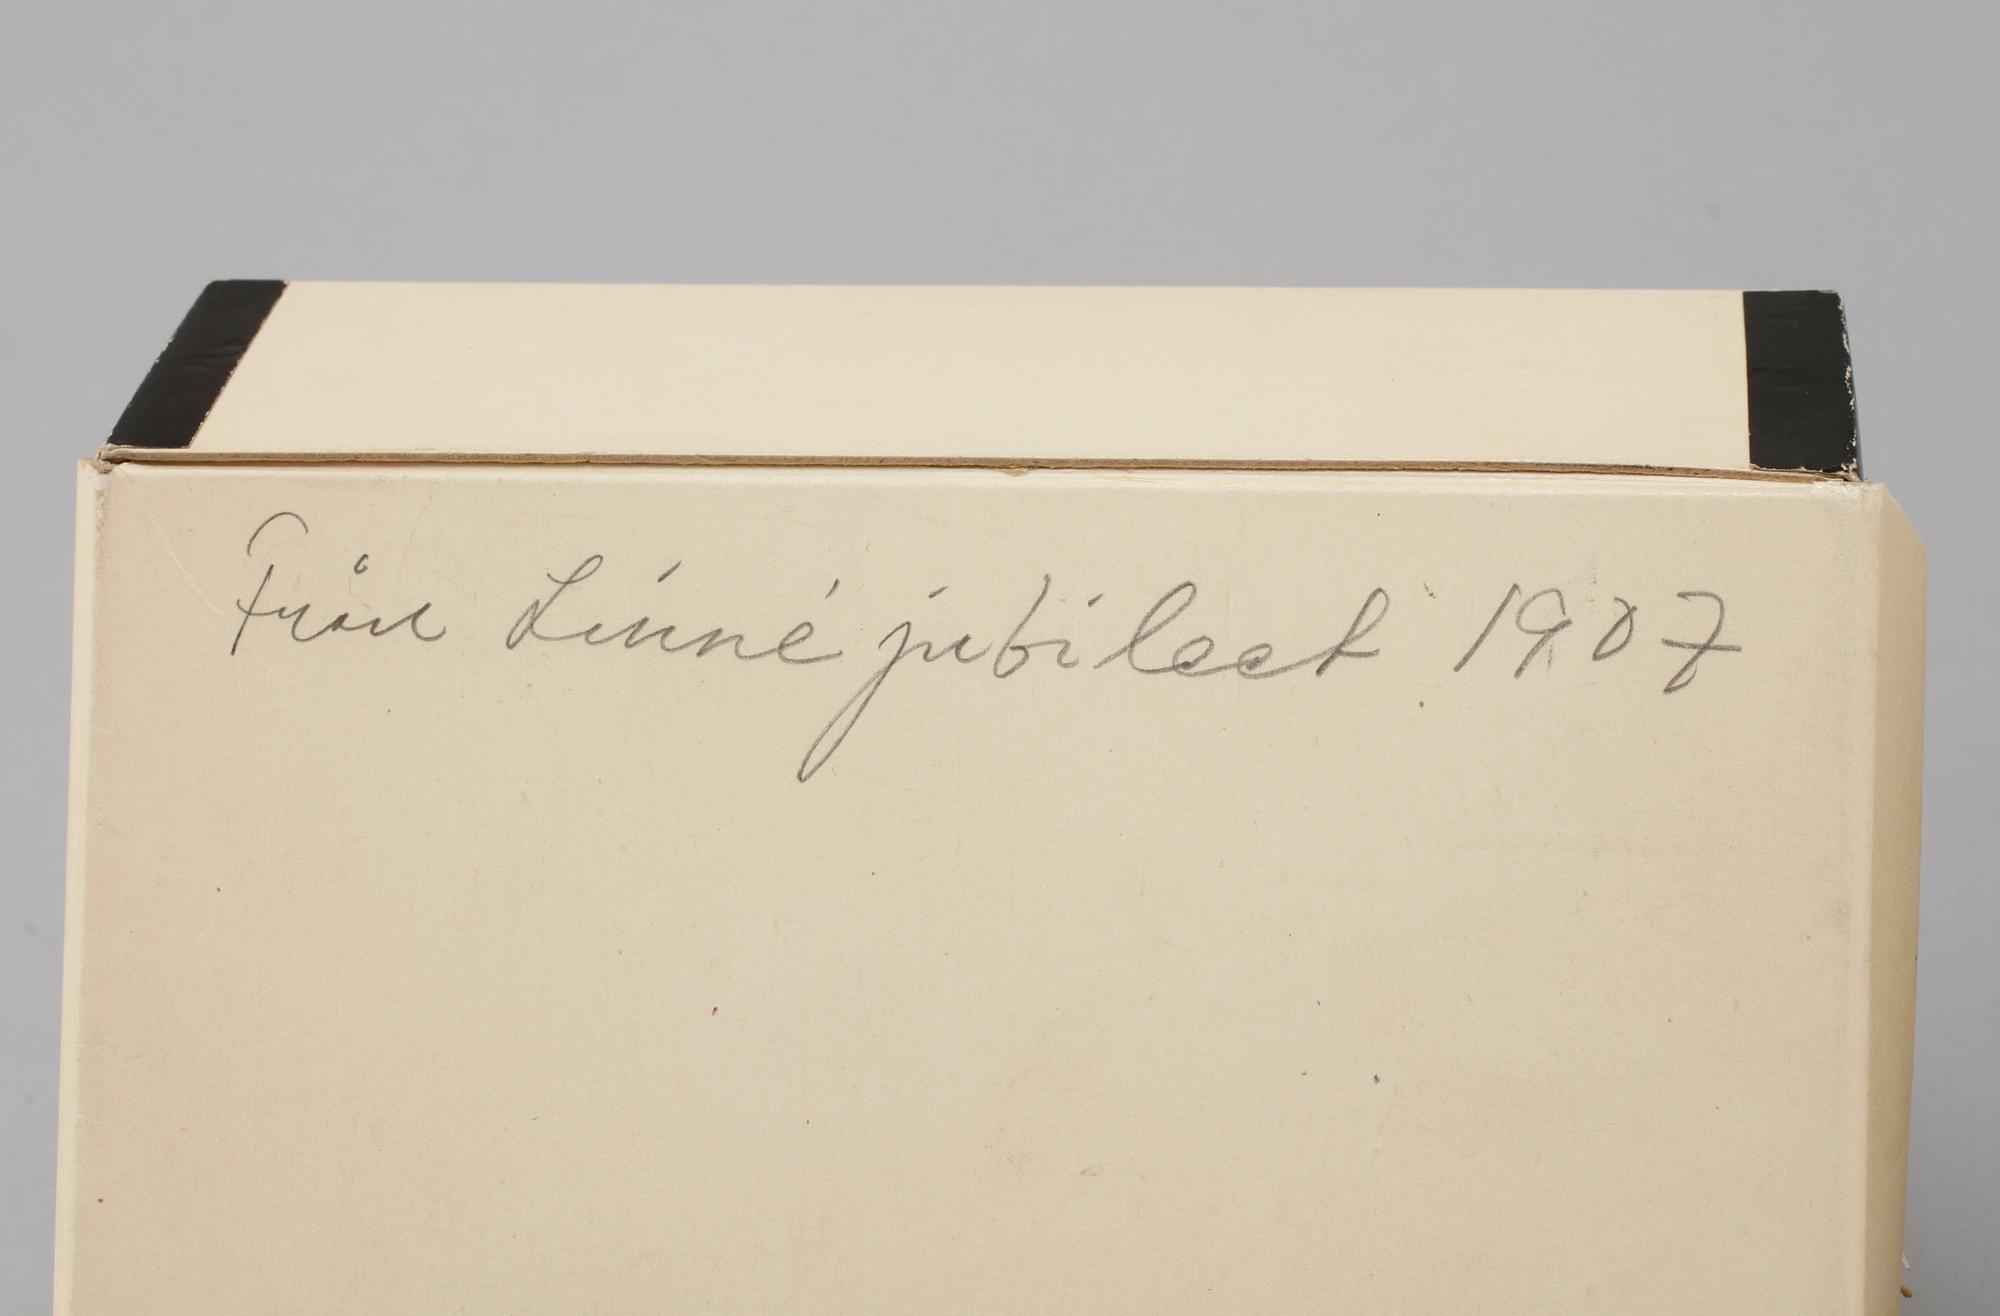 Från Linnéjubileet 1907